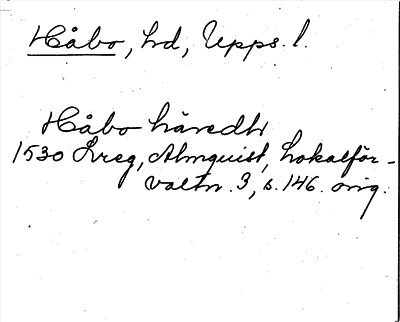 Håbo, hd, Upps. l.
Håbo häredh
1530 Lreg, Almquist, Lokalför-
valtn. 3, s. 146. orig.